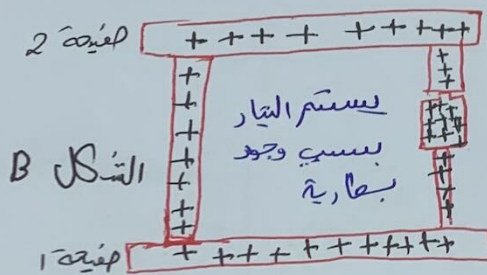 صفيحة 2
يستمر التيار
بسبب وجود
بطارية
الشكل B
صفيحة 1